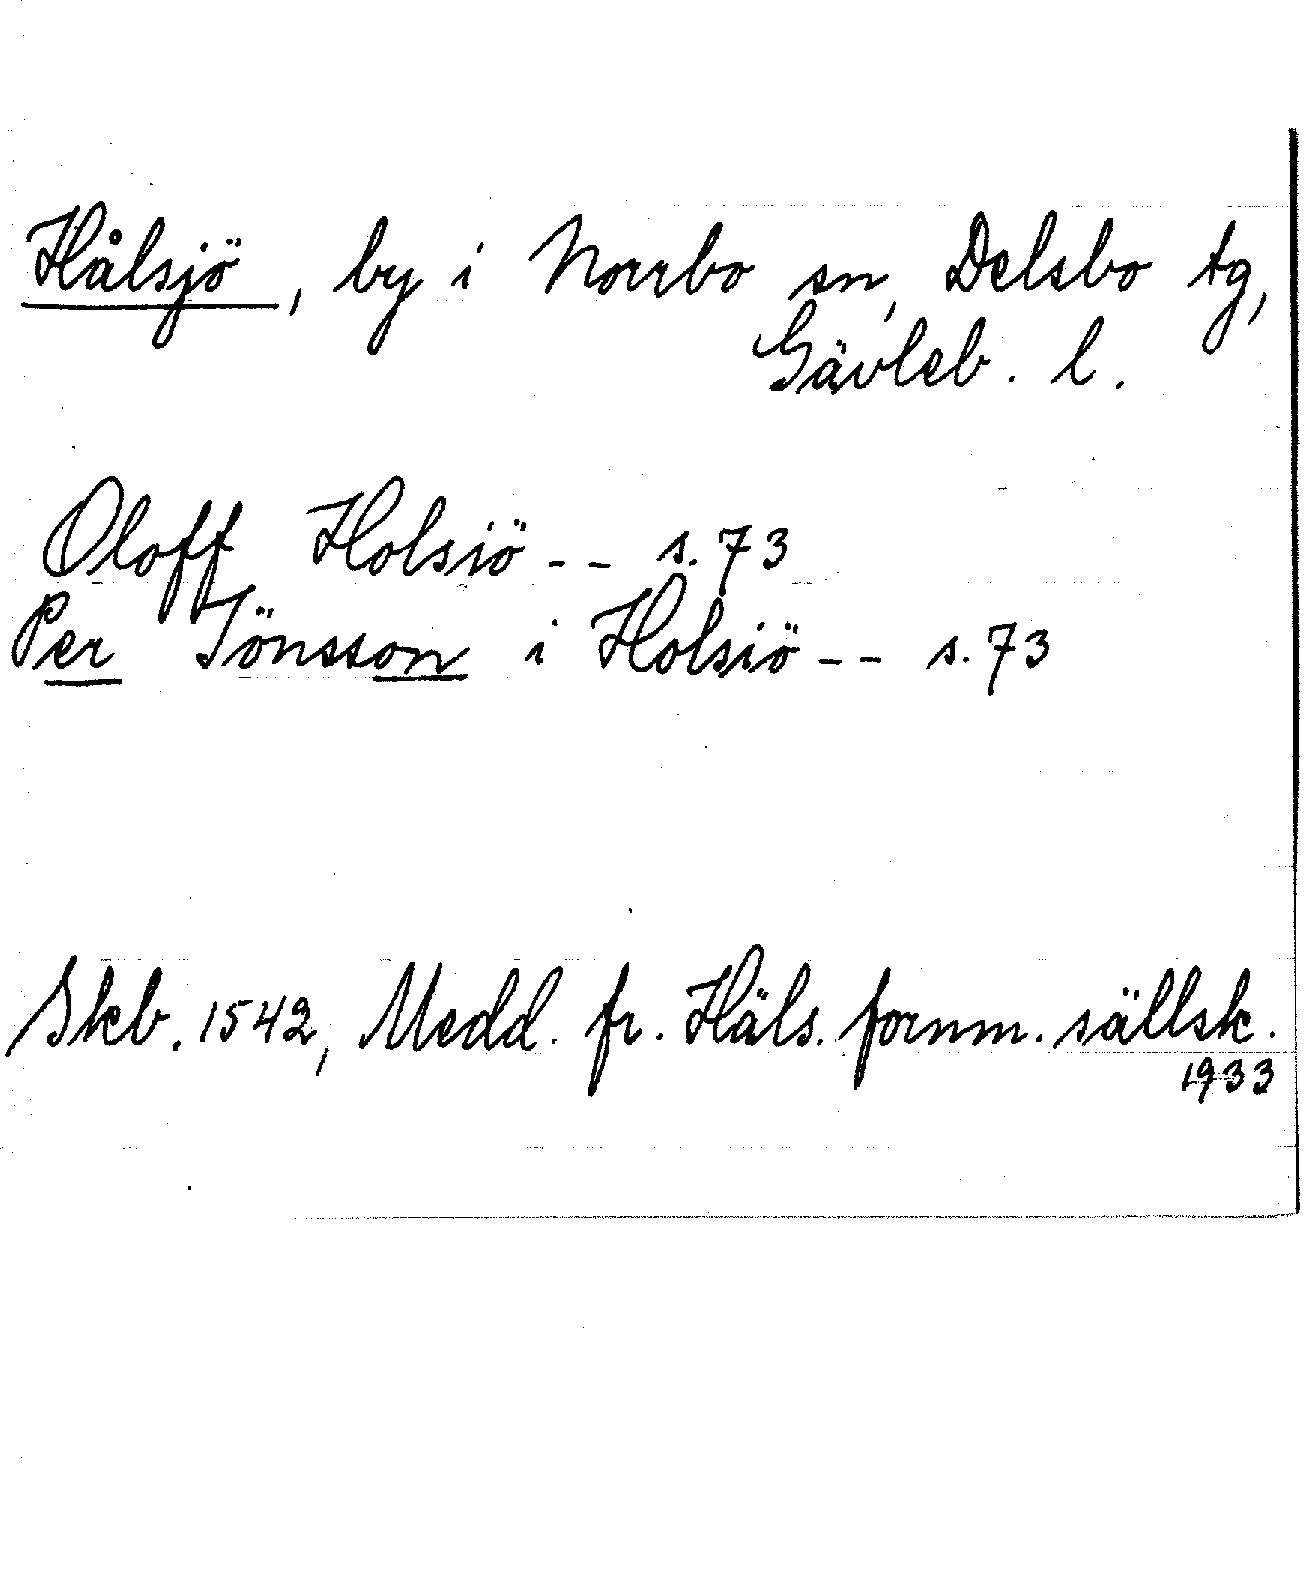 Hålsjö, by i Norrbo sn, Delsbo tg,
Gävleb. l.
Oloff Holsiö -- s. 73
Per Jönsson i Holsiö -- s. 73
Skb. 1542, Medd. fr. Häls. fornm. sällsk.
1933